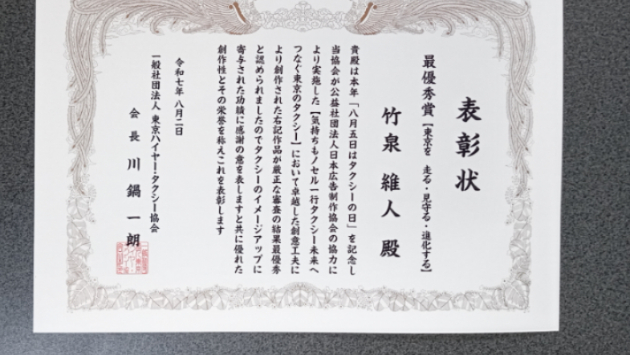 表彰状
最優秀賞【東京を 走る・見守る・進化する】
竹泉 維人 殿
貴殿は本年「八月五日はタクシーの日」を記念し
当協会が公益社団法人日本広告制作協会の協力に
より実施した【気持ちもノセル一行タクシー未来へ
つなぐ東京のタクシー】において卓越した創意工夫に
より創作された右記作品が厳正な審査の結果最優秀
と認められましたのでタクシーのイメージアップに
寄与された功績に感謝の意を表しますと共に優れた
創作性とその栄誉を称えこれを表彰します
令和七年 八月二日
一般社団法人 東京ハイヤー・タクシー協会
会長 川鍋 一朗